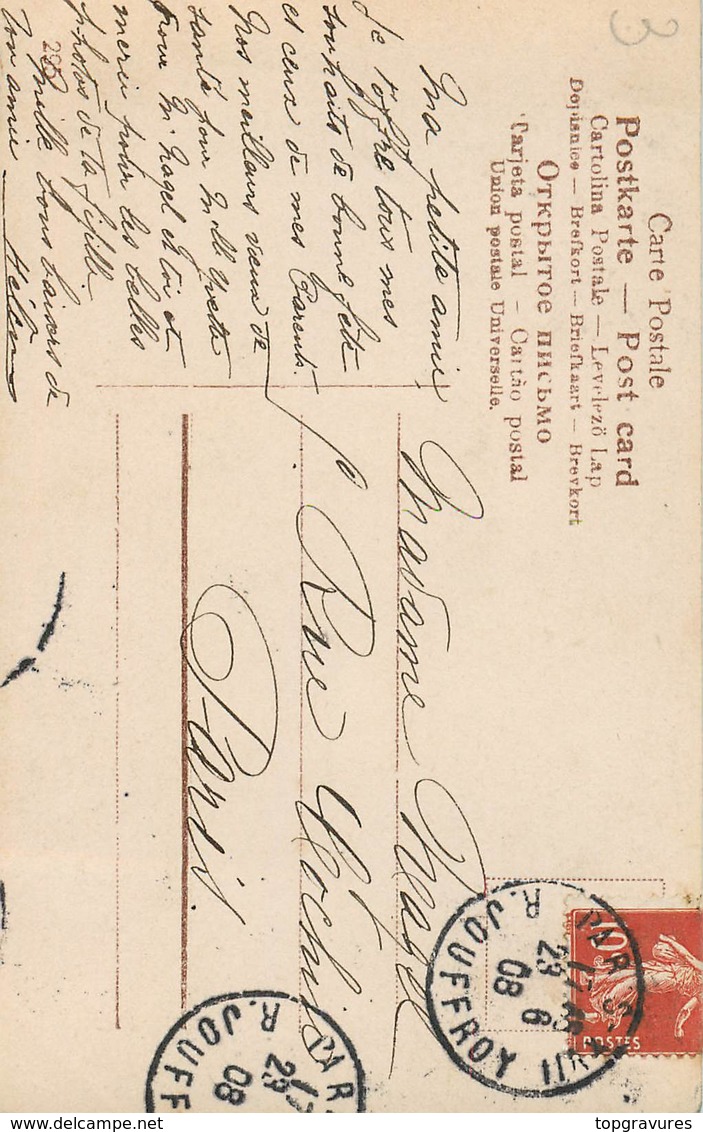 3
Carte Postale
Postkarte — Post card
Cartolina Postale — Levelező Lap
Dopisnice — Brefkort — Briefkaart — Brevkort
Открытое письмо
Tarjeta postal — Cartão postal
Union postale Universelle.
Ma petite amie,
Je t'offre tous mes
souhaits de bonne fête
et ceux de mes Parents.
Nos meilleurs vœux de
santé pour Mlle Yvette
Pour Mr Nagel et toi et
merci pour les belles
photos de ta fifille
Mille bons baisers de
ton amie
295
Madame Nagel
Rue
Paris.
10
POSTES
PARIS
R. JOUFFROY
23 6
08
PAR
R. JOUFF
23
08
topgravures